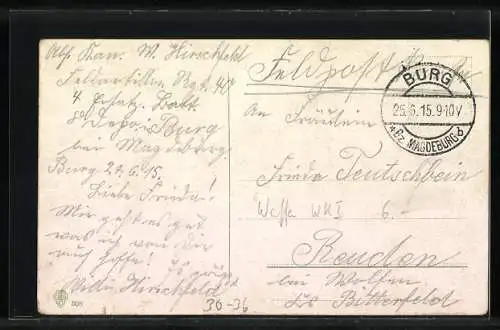 Abs. Kan. W. Hirschfeld
Feldartillerie Rgt. 40
4 Ersatz Batt.
Depot Burg
bei Magdeburg
Burg 24.6.15.
Liebe Frieda!
Mir geht es gut
was ich von dir
auch hoffe! Es grüßt
Willi Hirschfeld
30-36
Feldpost
BURG
25.6.15.9-10V
*Bz. MAGDEBURG b
An Fräulein
Frieda Teutschbein
Waffe WKI 6.-
Reuden
bei Wolfen
Kr. Bitterfeld